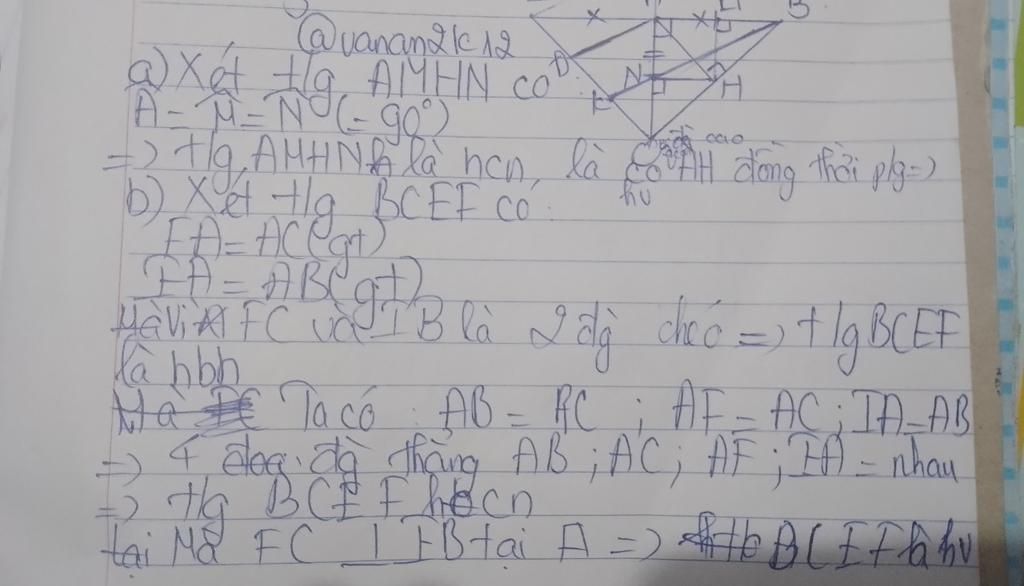 x x H B
@vanan2k12
D
a) Xét t/g AMHN có
N H
Â = M̂ = N̂ (= 90°)
K
=> t/g AMHN là hcn, là
Có AH đồng thời p/g =>
hv
b) Xét t/g BCEF có:
FA = AC (gt)
EA = AB (gt)
Mà vì FC và EB là 2 đg chéo => t/g BCEF
là hbh
Mà Ta có : AB = AC ; AF = AC ; EA = AB
=> 4 đoạn đg thẳng AB ; AC ; AF ; EA = nhau
=> t/g BCEF hcn
tại Mà FC ⊥ EB tại A => BCEF là hv